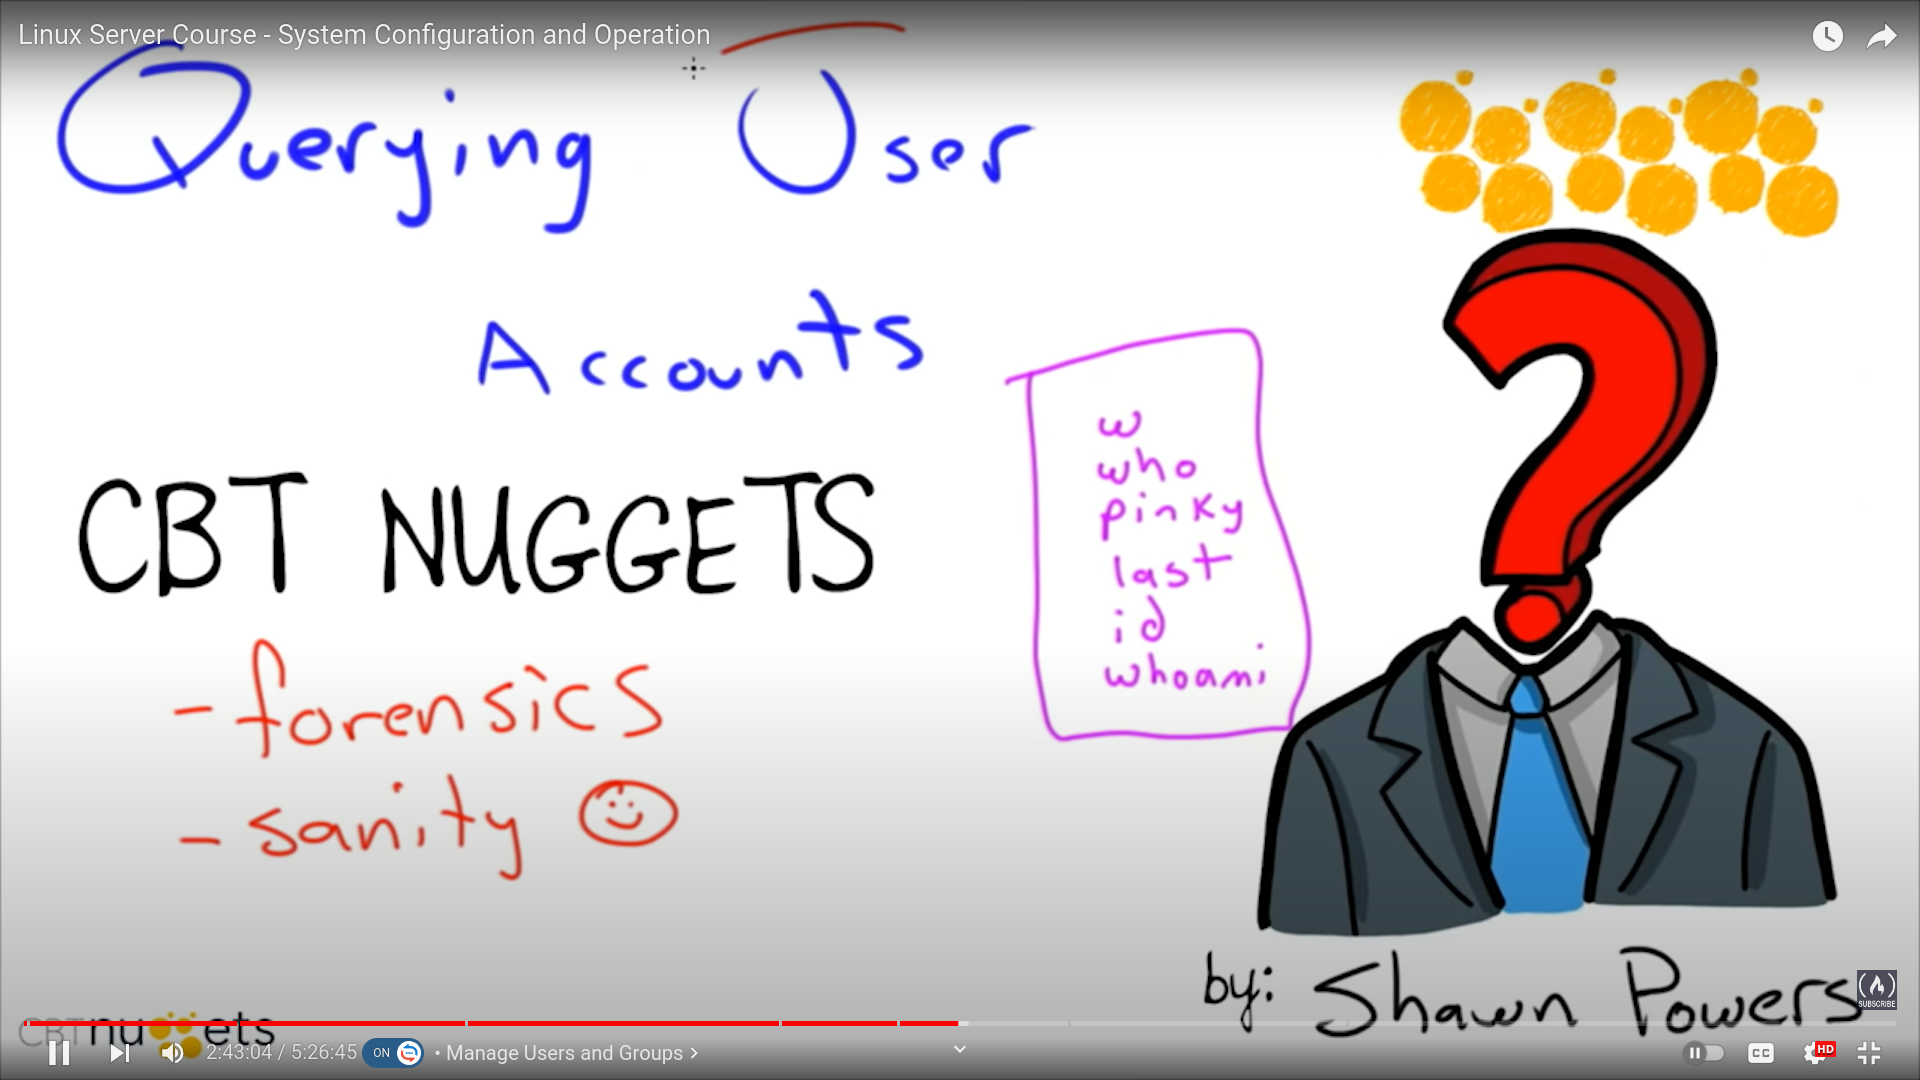 Linux Server Course - System Configuration and Operation
Querying User
Accounts
CBT NUGGETS
- forensics
- sanity
w
who
pinky
last
id
whoami
by: Shawn Powers
SUBSCRIBE
CBT nuggets
2:43:04 / 5:26:45
ON
• Manage Users and Groups
CC
HD